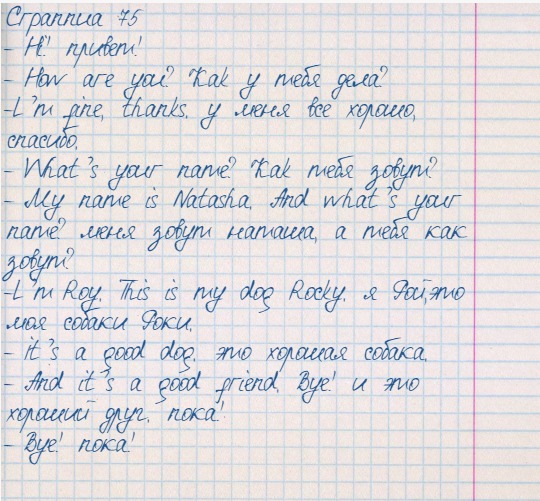 Страница 75
- Hi! привет!
- How are you? Как у тебя дела?
-I'm fine, thanks. у меня все хорошо,
спасибо.
- What's your name? Как тебя зовут?
- My name is Natasha. And what's your
name? меня зовут наташа, а тебя как
зовут?
-I'm Roy. This is my dog Rocky. я Рой, это
моя собаки Роки.
- it's a good dog. это хорошая собака.
- And it's a good friend. Bye! и это
хороший друг. пока!
- Bye! пока!